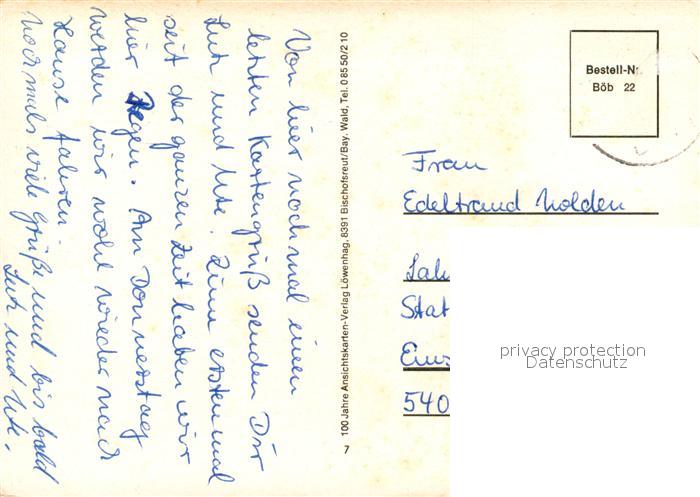 Von hier noch mal einen
letzten Kartengruß senden Dir
Lutz und Ute. Zum erstenmal
seit der ganzen Zeit haben wir
hier Regen. Am Donnerstag
werden wir wohl wieder nach
Hause fahren.
Nochmals viele Grüße und bis bald
Lutz und Ute.
100 Jahre Ansichtskarten-Verlag Löwenhag, 8391 Bischofsreut/Bay. Wald, Tel. 08550/210
7
Bestell-Nr.
Böb 22
Frau
Edeltraud Nolden
Lah
Stat
Eins
540
privacy protection
Datenschutz